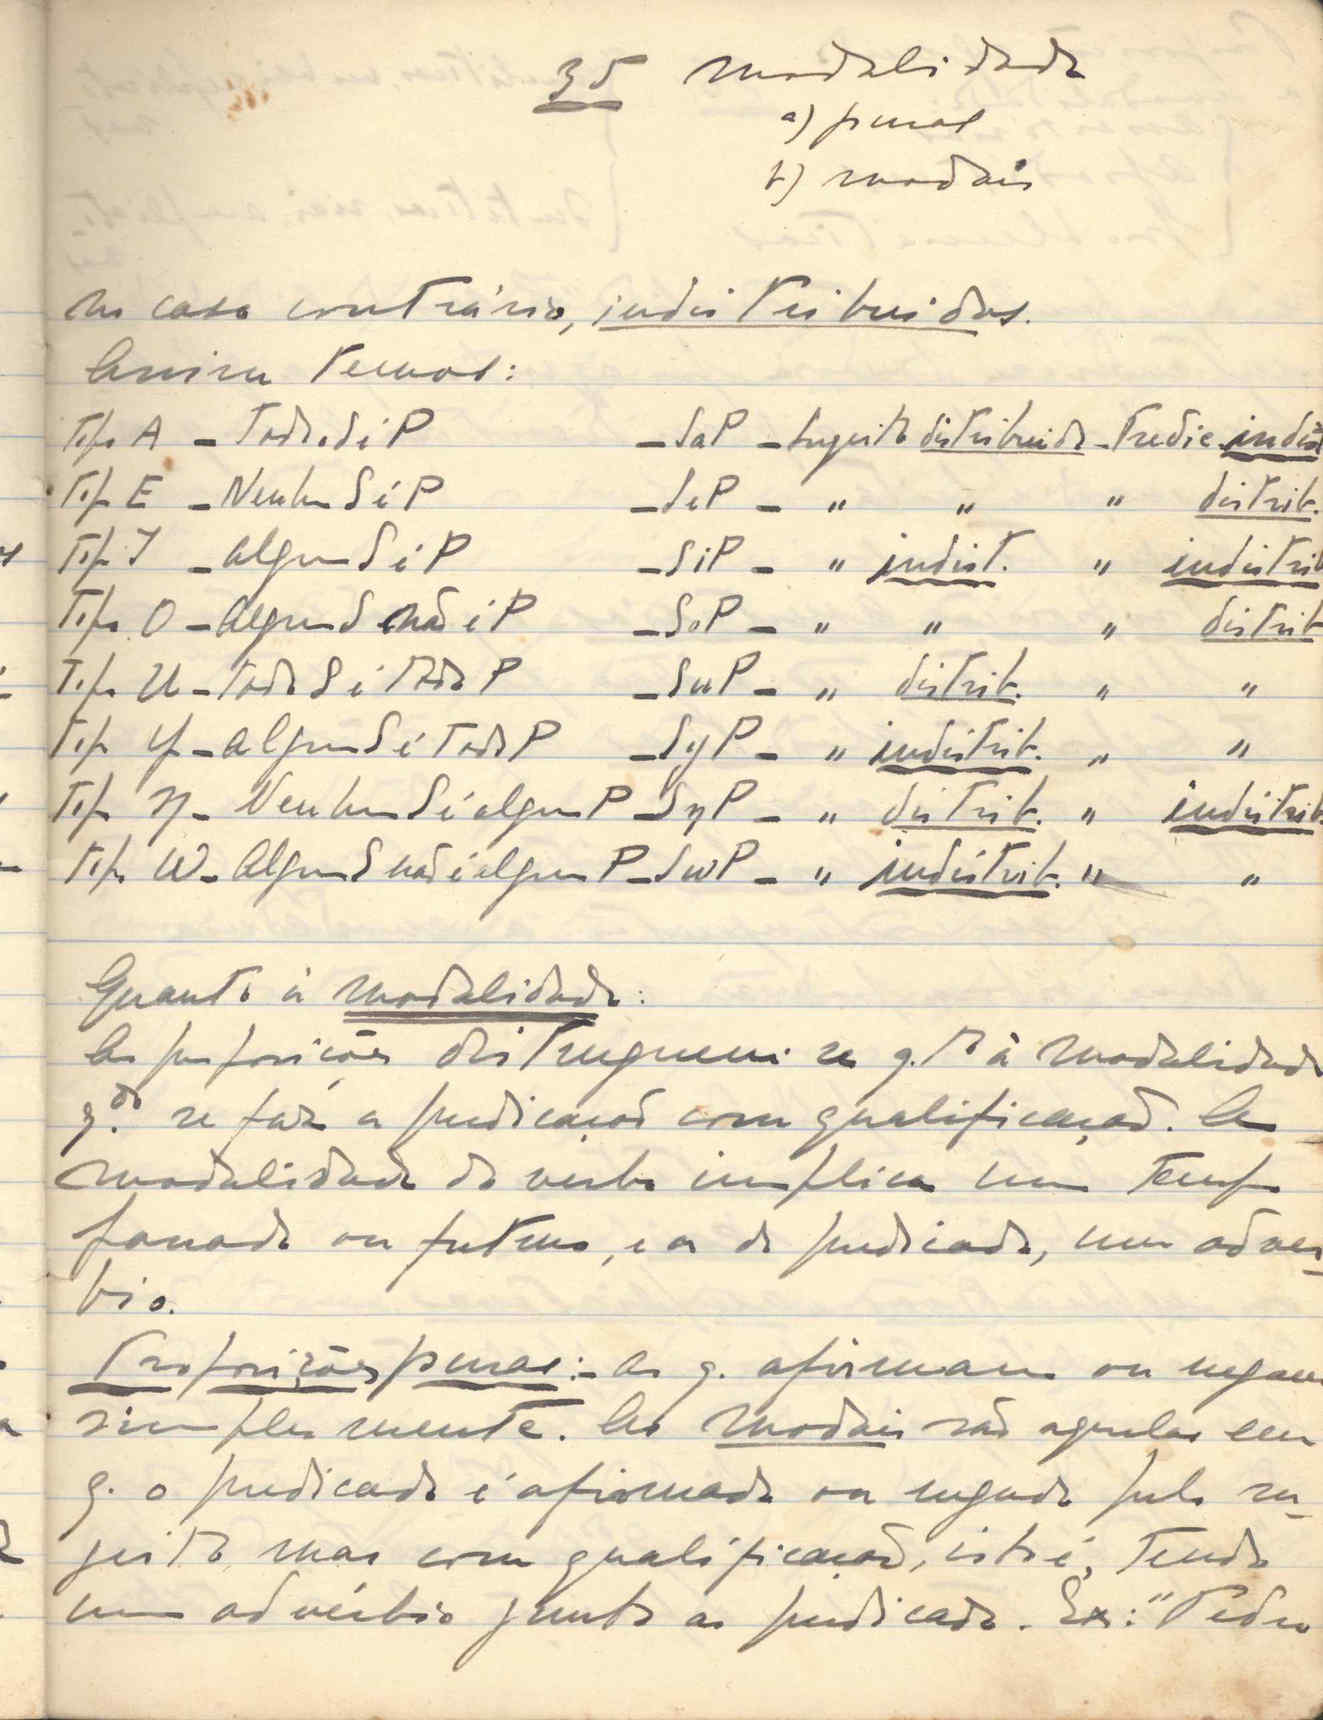 35 modalidade
a) puras
b) modais
no caso contrário, indistribuidos.
Assim temos:
Tipo A - Todo S é P - SaP - Sugeito distribuido - Predic. indist
Tipo E - Nenhum S é P - SeP - " " " distrib.
Tipo I - Algum S é P - SiP - " indist. " indistrib
Tipo O - Algum S não é P - SoP - " " " distrib
Tipo U - Todo S é todo P - SuP - " distrib. " "
Tipo Y - Algum S é todo P - SyP - " indistrib. " "
Tipo η - Nenhum S é algum P - SηP - " distrib. " indistrib.
Tipo W - Algum S não é algum P - SwP - " indistrib. " "
Quanto à modalidade:
As proposições distinguem-se q.to à modalidade
q.do se faz a predicação com qualificação. A
modalidade do verbo implica um tempo
passado ou futuro, e a do predicado, um advér-
bio.
Proposições puras:- As q. afirmam ou negam
simplesmente. As modais são aquelas em
q. o predicado é afirmado ou negado pelo su-
jeito, mas com qualificação, isto é, tendo
um advérbio junto ao predicado. Ex: "Pedro